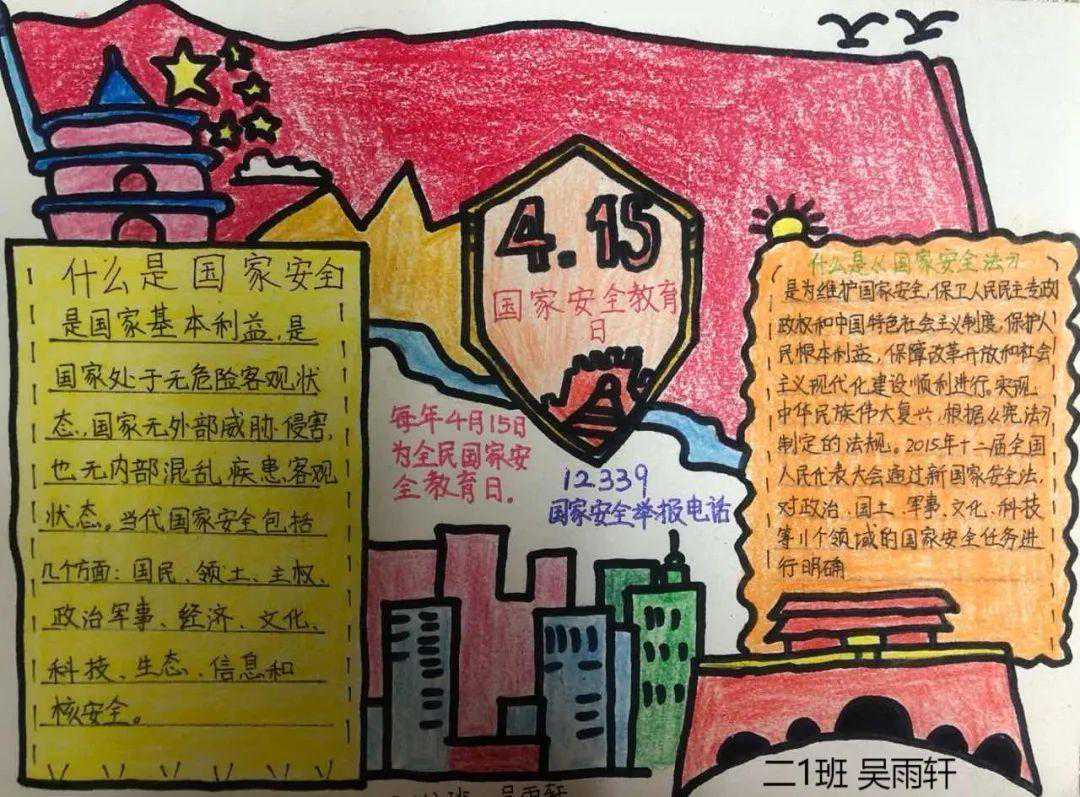 什么是国家安全
是国家基本利益,是
国家处于无危险客观状
态,国家无外部威胁侵害,
也无内部混乱疾患客观
状态。当代国家安全包括
几个方面:国民、领土、主权、
政治军事、经济、文化、
科技、生态、信息和
核安全。
4.15
国家安全教育
日
每年4月15日
为全民国家安
全教育日.
12339
国家安全举报电话
什么是《国家安全法》
是为维护国家安全,保卫人民民主专政
政权和中国特色社会主义制度,保护人
民根本利益,保障改革开放和社会
主义现代化建设顺利进行。实现
中华民族伟大复兴,根据《宪法》
制定的法规。2015年十二届全国
人民代表大会通过新国家安全法,
对政治、国土、军事、文化、科技
等11个领域的国家安全任务进
行明确
二1班 吴雨轩
班 吴雨轩